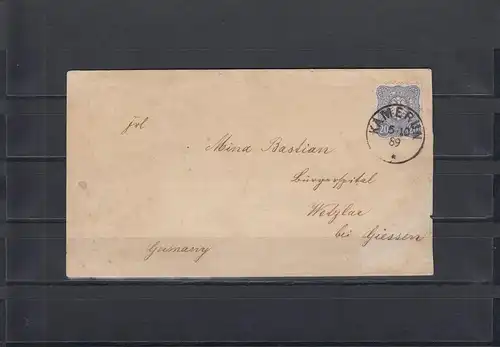 KAMERUN
20
5 10
89
*
Frl
Mina Bastian
Bürgerspital
Wetzlar
bei Giessen
Germany